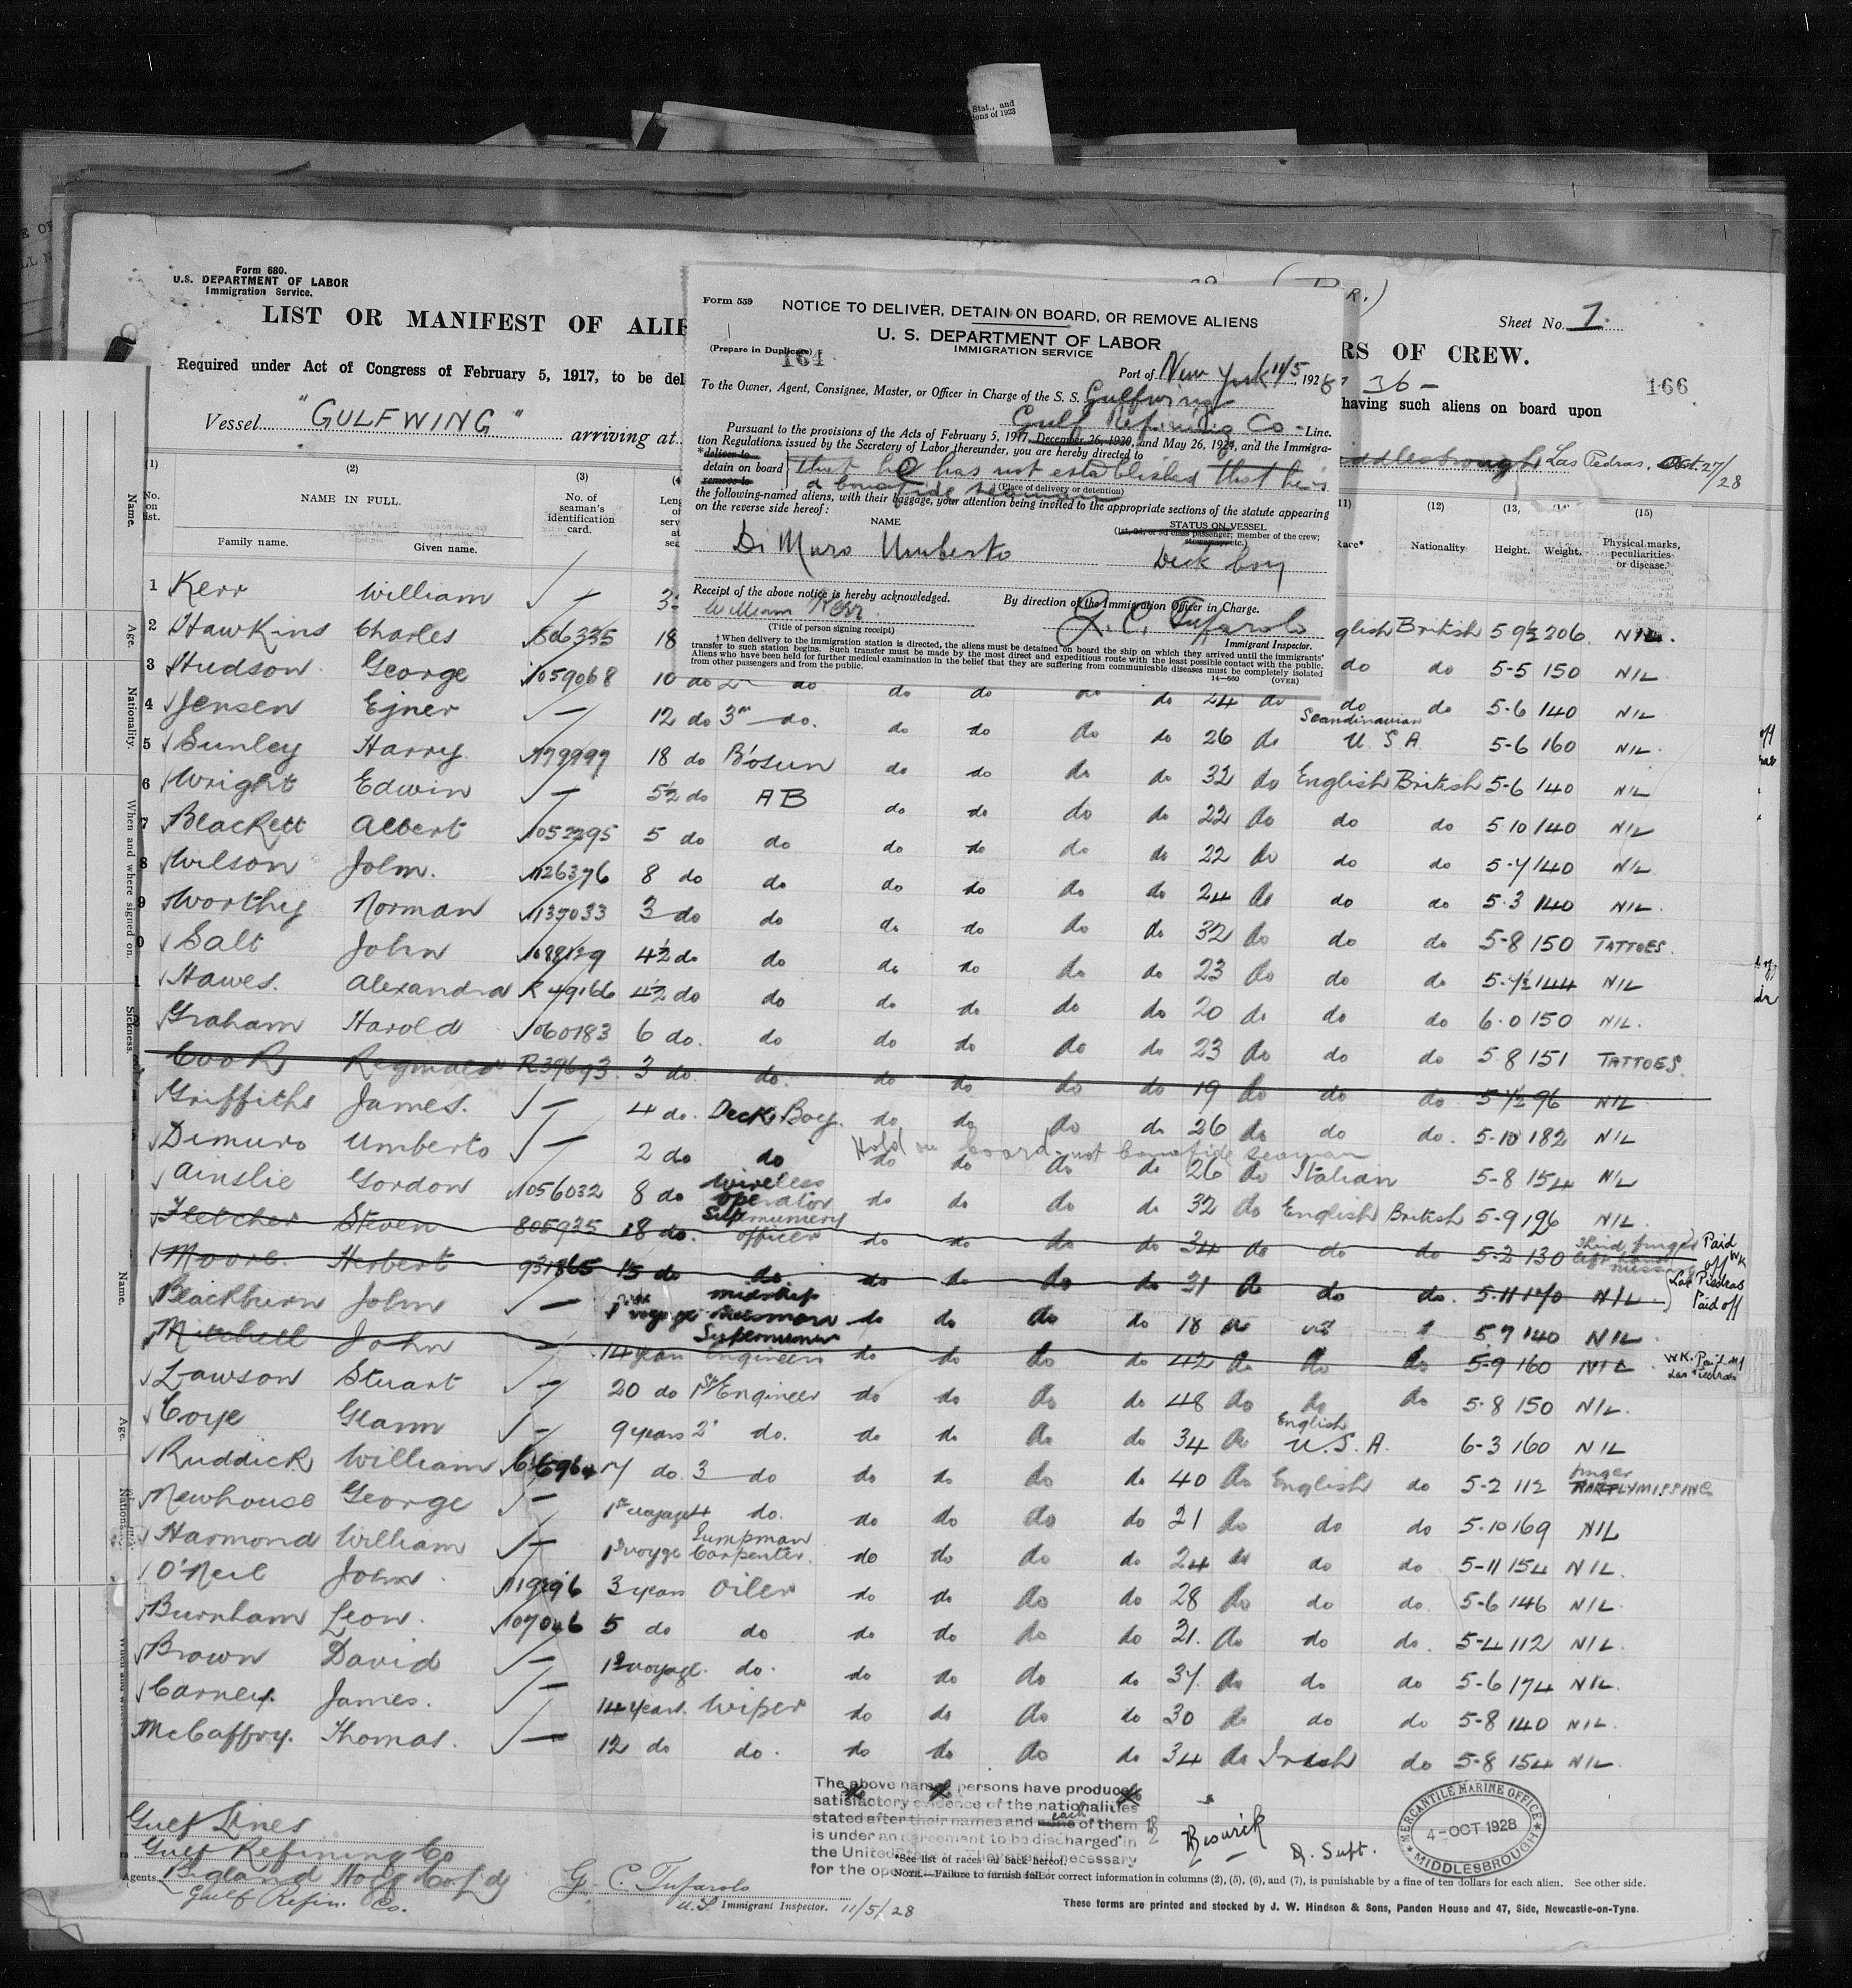 Stat., and
ions of 1923
Form 680.
U.S. DEPARTMENT OF LABOR
Immigration Service.
LIST OR MANIFEST OF ALIE
RS OF CREW.
Sheet No. 1.
166
Required under Act of Congress of February 5, 1917, to be del
having such aliens on board upon
Vessel "GULFWING" arriving at
iddlesbrough Las Pedras, Oct. 27/28
Form 559
NOTICE TO DELIVER, DETAIN ON BOARD, OR REMOVE ALIENS
U. S. DEPARTMENT OF LABOR
IMMIGRATION SERVICE
(Prepare in Duplicate)
164
Port of New York 11/5, 1928
To the Owner, Agent, Consignee, Master, or Officer in Charge of the S. S. Gulfwing
Gulf Refining Co - Line.
Pursuant to the provisions of the Acts of February 5, 1917, December 26, 1920, and May 26, 1924, and the Immigra-
tion Regulations issued by the Secretary of Labor thereunder, you are hereby directed to
*deliver to
detain on board that he has not established that he is
remove to a bonafide seaman
† (Place of delivery or detention)
the following-named aliens, with their baggage, your attention being invited to the appropriate sections of the statute appearing
on the reverse side hereof:
NAME
STATUS ON VESSEL
(1st, 2d, or 3d class passenger; member of the crew; stowaway, etc.)
Di Muro Umberto Deck boy
Receipt of the above notice is hereby acknowledged.
By direction of the Immigration Officer in Charge.
William Kerr
G. C. Tufarolo
(Title of person signing receipt)
Immigrant Inspector.
† When delivery to the immigration station is directed, the aliens must be detained on board the ship on which they arrived until the immigrants'
transfer to such station begins. Such transfer must be made by the most direct and expeditious route with the least possible contact with the public.
Aliens who have been held for further medical examination in the belief that they are suffering from communicable diseases must be completely isolated
from other passengers and from the public.
14—680 (OVER)
(1) (2) (3) (12) (13) (15)
No. on list.
NAME IN FULL.
Family name. Given name.
No. of seaman's identification card.
Race* Nationality. Height. Weight. Physical marks, peculiarities or disease.
1 Kerr William —
2 Hawkins Charles 806335 18 glish British 5 9½ 206 NIL.
3 Hudson George 1059068 10 do 2 do do do do do 24 do do do 5-5 150 NIL
4 Jensen Ejner — 12 do 3rd do. do do do do 26 do Scandinavian U S A 5-6 140 NIL
5 Sunley Harry 779997 18 do B'osun do do do do 32 do English British 5-6 160 NIL
6 Wright Edwin — 5½ do AB do do do do 22 do do do 5-6 140 NIL
7 Blackett Albert 1052295 5 do do do do do do 22 do do do 5 10 140 NIL
8 Wilson John. 1126376 8 do do do do do do 24 do do do 5-7 140 NIL
9 Worthy Norman 1135033 3 do do do do do do 32 do do do 5-3 140 NIL
0 Salt John 1088129 4½ do do do do do do 23 do do do 5-8 150 TATTOES.
1 Hawes. Alexandra R 49166 4½ do do do do do do 20 do do do 5-7½ 144 NIL
Graham Harold 1060183 6 do. do do do do do 23 do do do 6-0 150 NIL.
Cook Reginald R39693 3 do do. do do do do 19 do do do 5 8 151 TATTOES.
Griffiths James. — 4 do. Deck Boy. do do do do 26 do do do. 5 ½ 96 NIL
Dimuro Umberto — 2 do do do do do do 26 do Italian 5-10 182 NIL
Hold on board not bonafide seaman
Ainslie Gordon 1056032 8 do wireless operator do do do do 32 do English British 5-8 154 NIL
Fletcher Steven 805935 18 do. Supernumery officer do do do do 34 do do do 5-9 196 NIL.
Moore. Herbert 931865 15 do do do do do do 31 do do do. 5-2 130 third finger left hand missing Paid off WK Las Piedras
Blackburn John — 1st voyage midship messman do do do do 18 do 5-11 170 NIL. Paid off
Mitchell John — 14 years Supernumer Engineer do do do do 42 do do do 5 7 140 NIL
Lawson Stuart — 20 do 1st Engineer do do do do 48 do do do 5-9 160 NIL WK. Paid off Las Piedras
Coye Glann — 9 years 2' do. do do do do 34 do English U.S.A. 5-8 150 NIL.
Ruddick William 7 do. 3 do do do do do 40 do English do 6-3 160 NIL
Newhouse George — 1st voyage 4 do. do do do do 21 do do do 5-2 112 finger PARTLY MISSING
Harmond William — 1st voyge Pumpman Carpenter. do do do do 24 do do do 5-10 169 NIL
O'Neil John. 3 years Oiler do do do do 28 do do do. 5-11 154 NIL.
Burnham Leon. 5 do do do do do do 31. do do do. 5-6 146 NIL.
Brown David — 1st voyage. do. do do do do 37 do do do 5-4 112 NIL.
Carney. James. — 14 years. Wiper do do do do 30 do do do 5-6 174 NIL.
McCaffry. Thomas. — 12 do do. do do do do 34 do Irish do 5-8 140 NIL.
5-8 154 NIL.
The above named persons have produced
satisfactory evidence of the nationalities
stated after their names and each of them
is under an agreement to be discharged in
the United
for the ope
Beswick
D. Supt.
MERCANTILE MARINE OFFICE
4-OCT 1928
MIDDLESBROUGH
Gulf Lines
Gulf Refining Co
Agents
Gulf Refin. Co.
G. C. Tufarolo
U.S. Immigrant Inspector. 11/5/28
*See list of races on back hereof.
NOTE.—Failure to furnish full or correct information in columns (2), (5), (6), and (7), is punishable by a fine of ten dollars for each alien. See other side.
These forms are printed and stocked by J. W. Hindson & Sons, Pandon House and 47, Side, Newcastle-on-Tyne.
Name.
Age.
Nationality.
When and where signed on.
Sickness.
Name.
Age.